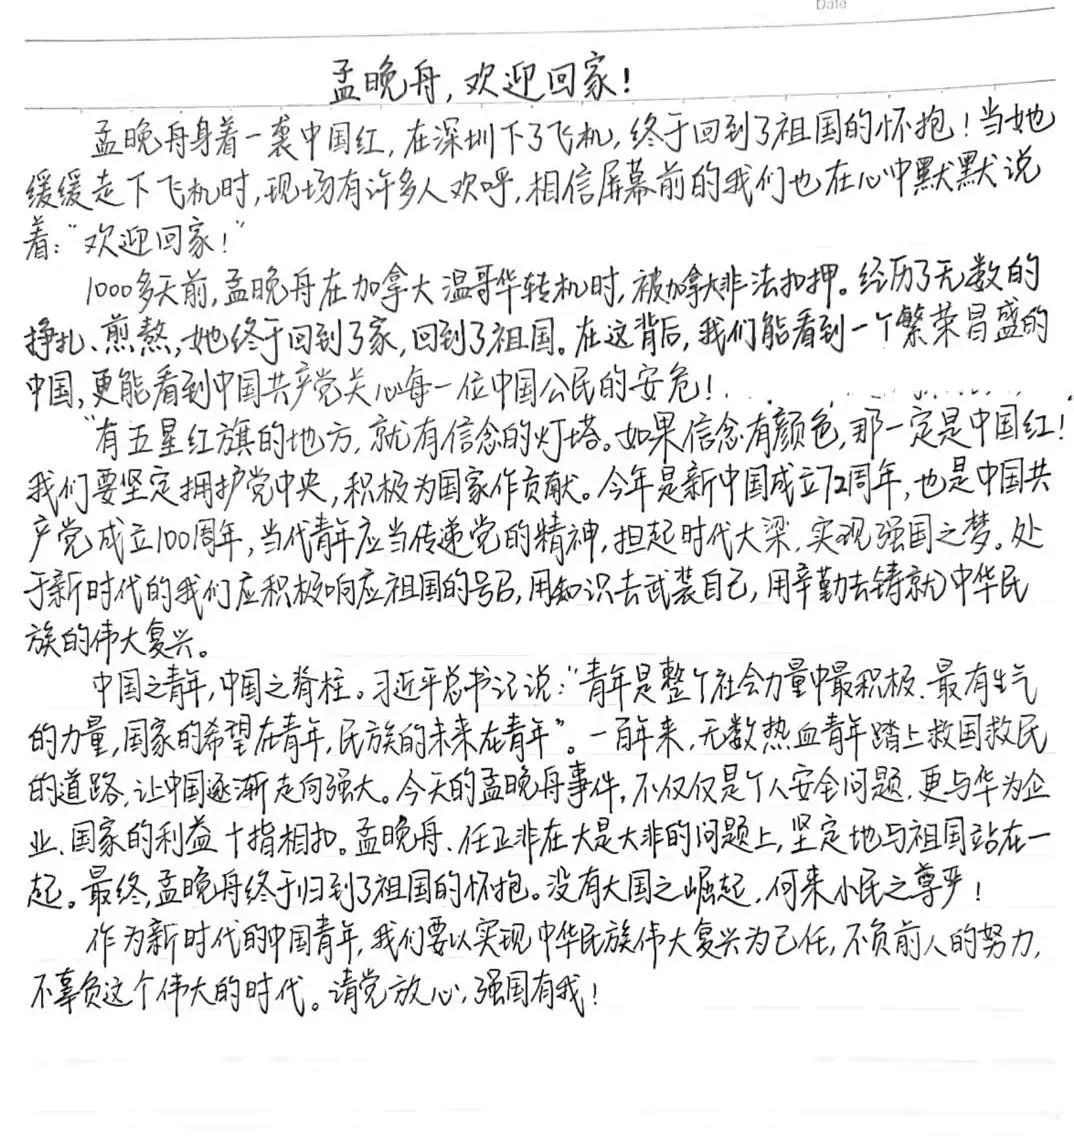 Date
孟晚舟,欢迎回家!
孟晚舟身着一袭中国红,在深圳下了飞机,终于回到了祖国的怀抱!当她
缓缓走下飞机时,现场有许多人欢呼,相信屏幕前的我们也在心中默默说
着:“欢迎回家!”
1000多天前,孟晚舟在加拿大温哥华转机时,被加拿大非法扣押。经历了无数的
挣扎、煎熬,她终于回到了家,回到了祖国。在这背后,我们能看到一个繁荣昌盛的
中国,更能看到中国共产党关心每一位中国公民的安危!
“有五星红旗的地方,就有信念的灯塔。如果信念有颜色,那一定是中国红!
我们要坚定拥护党中央,积极为国家作贡献。今年是新中国成立72周年,也是中国共
产党成立100周年,当代青年应当传递党的精神,担起时代大梁,实现强国之梦。处
于新时代的我们应积极响应祖国的号召,用知识去武装自己,用辛勤去铸就中华民
族的伟大复兴。
中国之青年,中国之脊柱。习近平总书记说:“青年是整个社会力量中最积极、最有生气
的力量,国家的希望在青年,民族的未来在青年”。一百年来,无数热血青年踏上救国救民
的道路,让中国逐渐走向强大。今天的孟晚舟事件,不仅仅是个人安全问题,更与华为企
业、国家的利益十指相扣。孟晚舟、任正非在大是大非的问题上,坚定地与祖国站在一
起。最终,孟晚舟终于归到了祖国的怀抱。没有大国之崛起,何来小民之尊严!
作为新时代的中国青年,我们要以实现中华民族伟大复兴为己任,不负前人的努力,
不辜负这个伟大的时代。请党放心,强国有我!